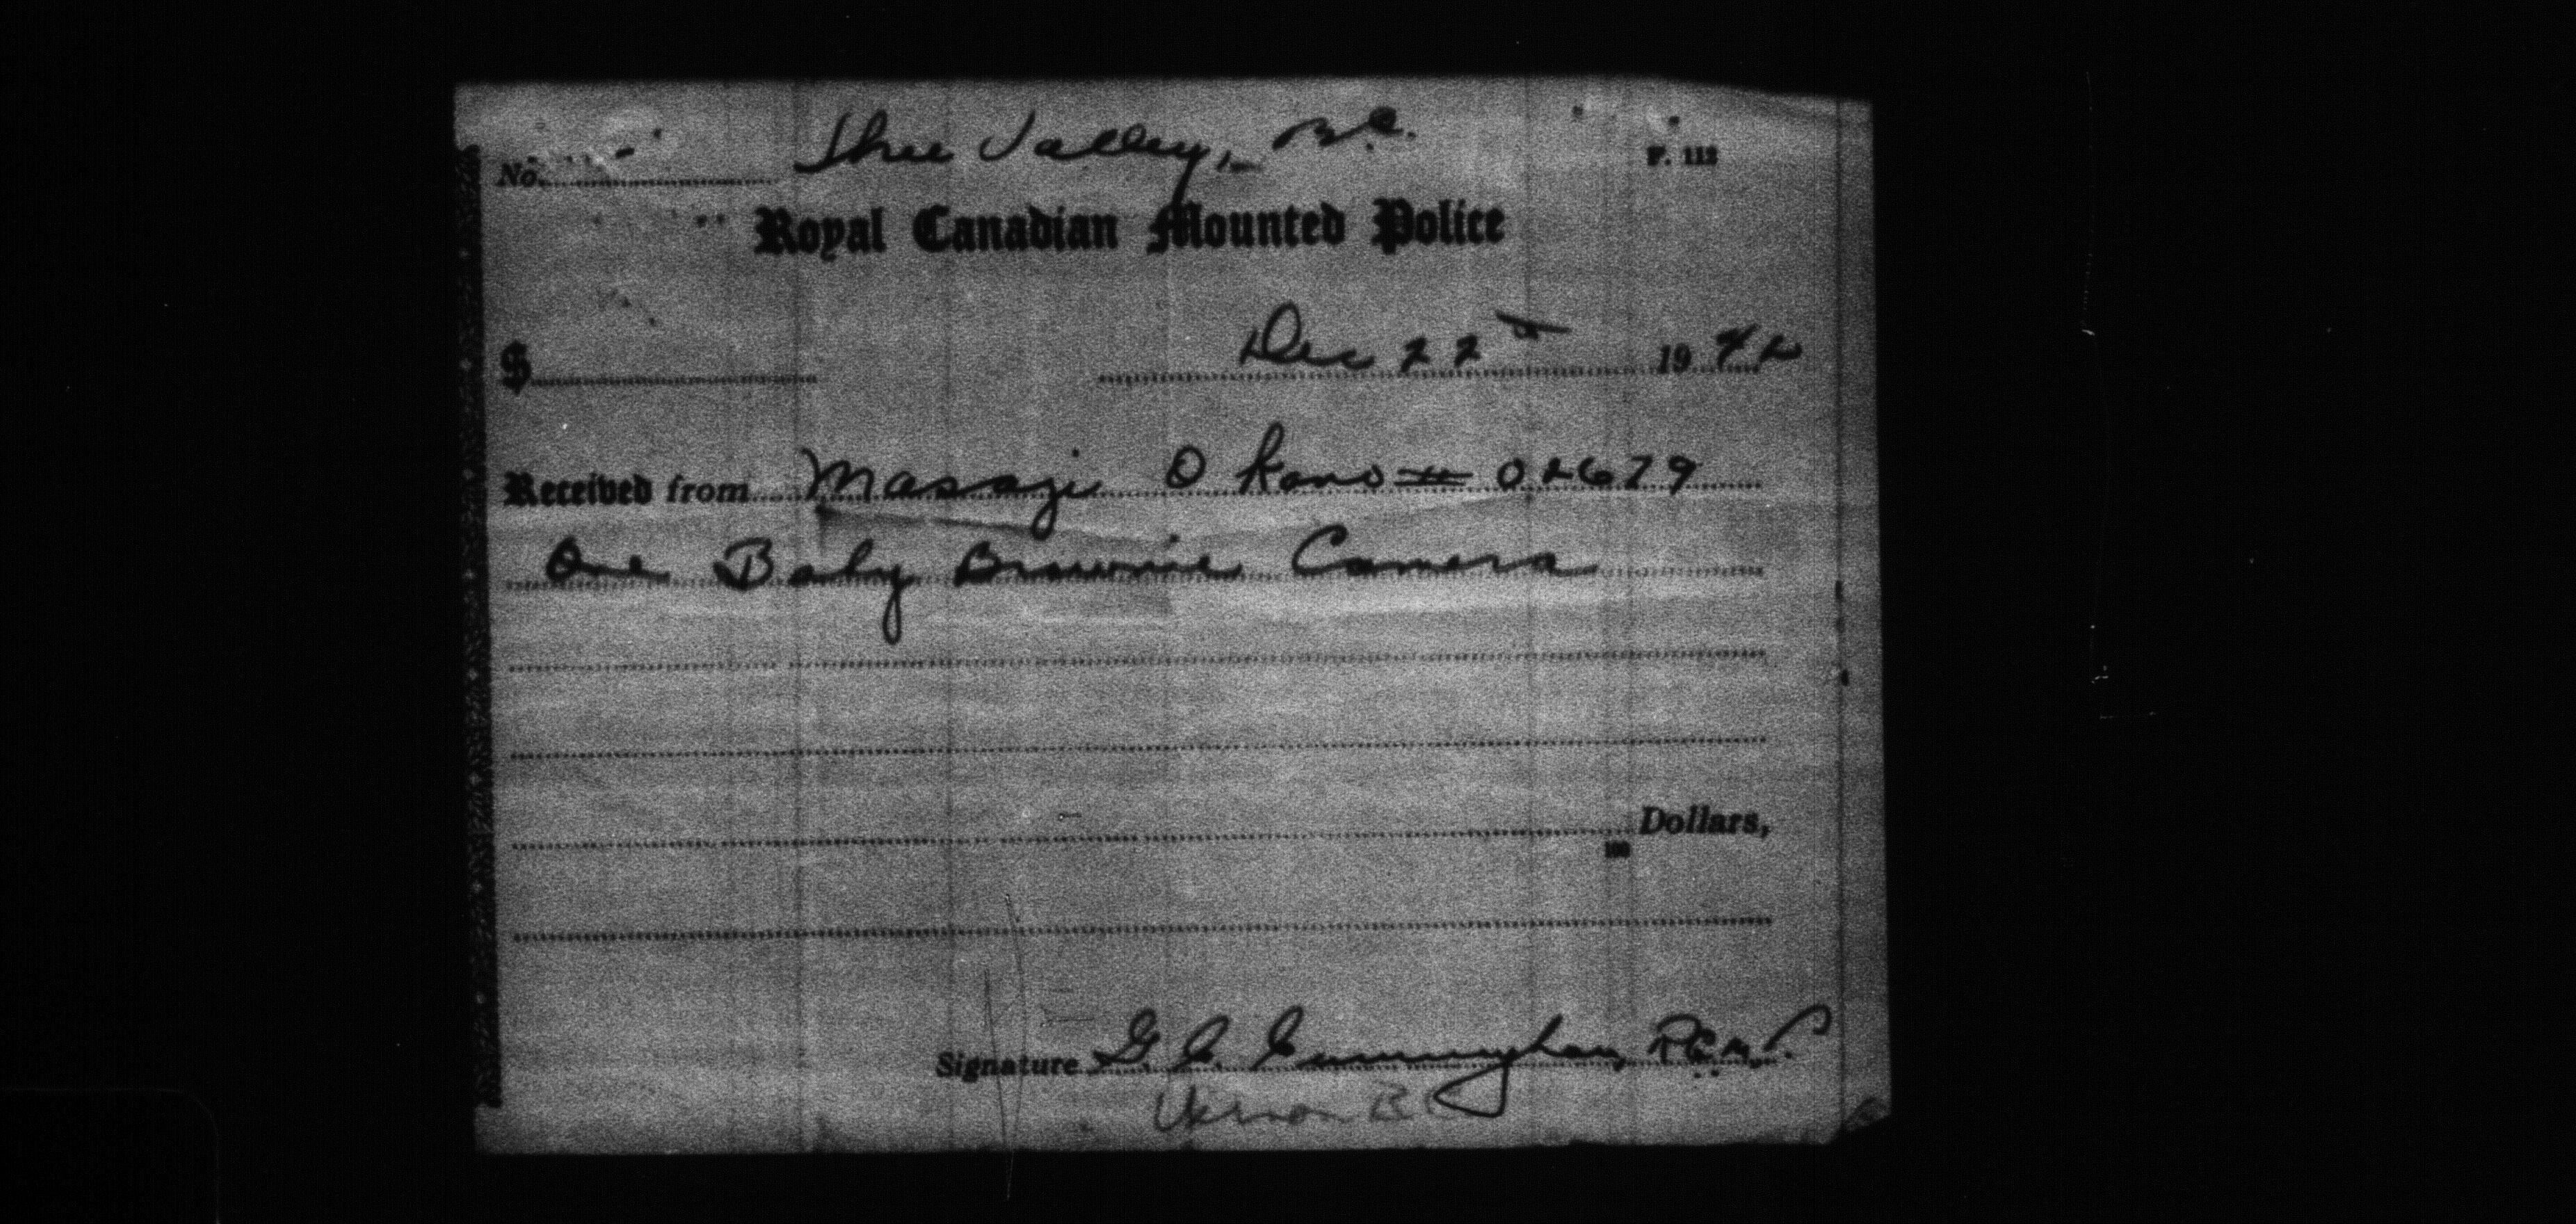 Three Valley, B.C.
No. F. 112
Royal Canadian Mounted Police
$ Dec 22nd 1942
Received from Masazi Okano # 02679
One Baby Brownie Camera
Dollars,
100
Signature G. C. Cunningham, R.C.M.P.
Vernon B C